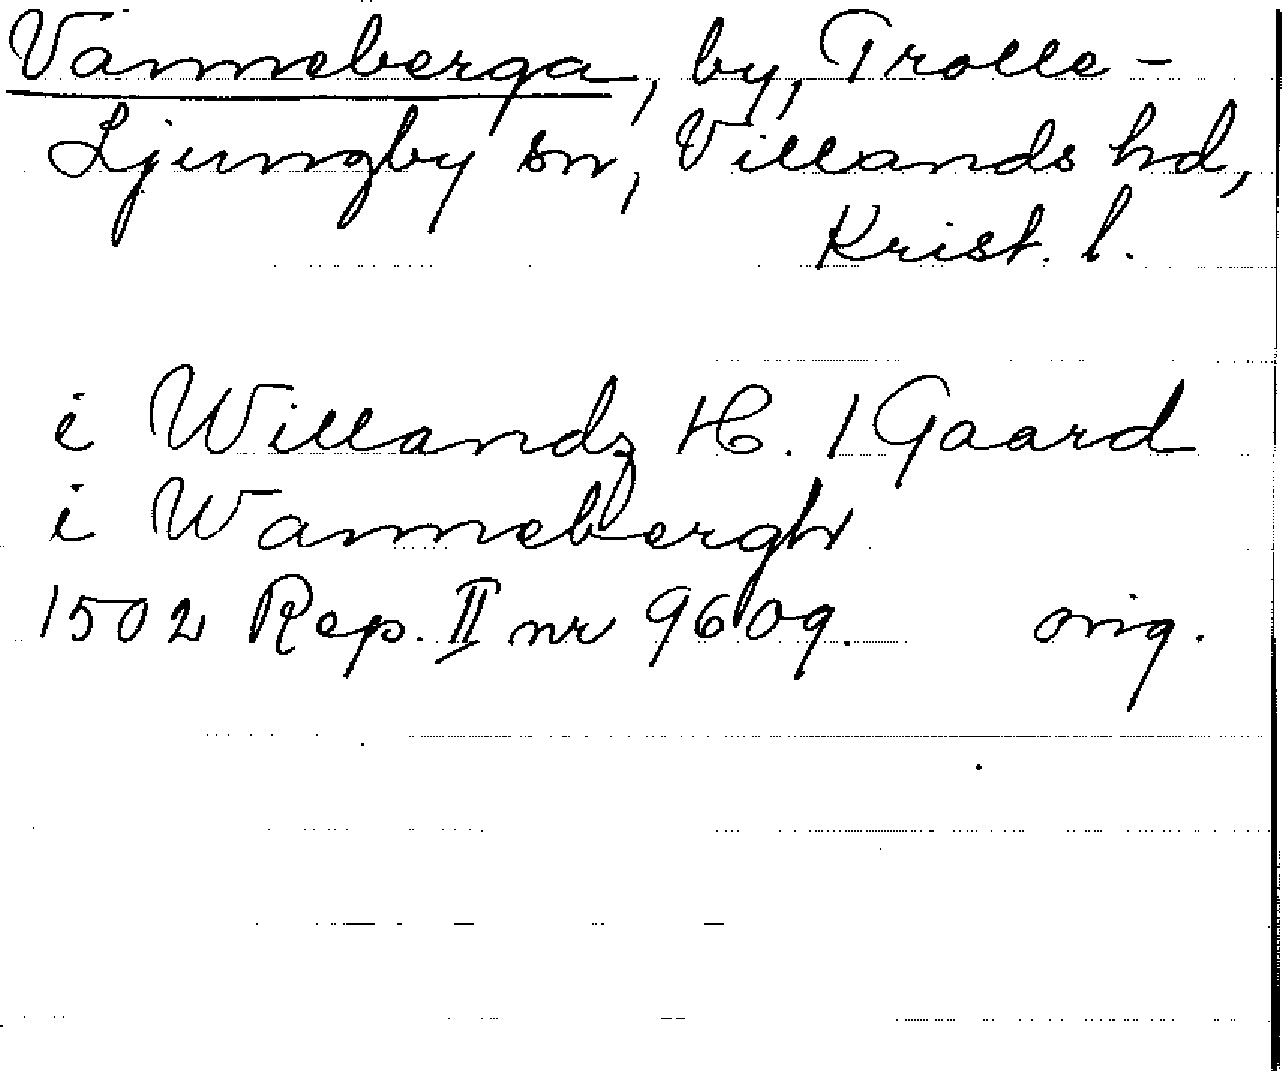 Vanneberga, by, Trolle-
Ljungby sn, Villands hd,
Krist. l.
i Willandz H. 1 Gaard
i Wannebergh
1502 Rep. II nr 9609. orig.